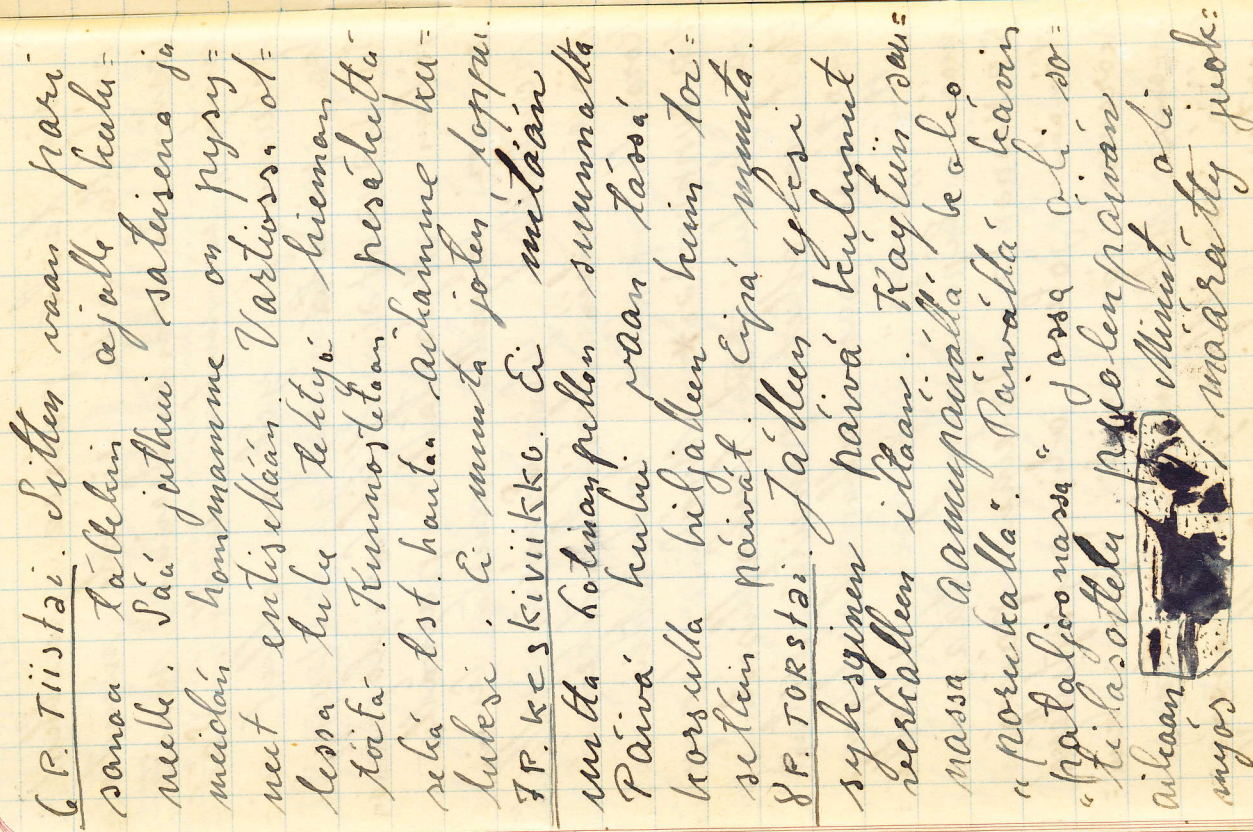 6 P. Tiistai. Sitten vaan pari
sanaa tällekin ajalle kulu=
neelle. Sää jatkui sateisena ja
meidän hommamme on pysy=
neet entisellään Vartiossa ol=
lessa tulee tehtyä hieman
töitä. Kunnostetaan pesäkettä
sekä tst. hautaa aikamme ku=
luksi. Ei muuta joten loppu.
7 P. Keskiviikko. Ei mitään
uutta Hotinanpellon suunnalta
Päivä kului vaan tässä
korsulla hiljalleen kuin toi=
setkin päivät. Eipä muuta.
8 P. TORSTAI. Jälleen yksi
syksyinen päivä kulunut
verkalleen iltaan. Käytiin sau=
nassa aamupäivällä koko
"porukalla". Päivällä kävin
"pataljoonassa" jossa oli so=
tilasottelu puolenpäivän
aikaan Minut oli
myös määrätty juok=